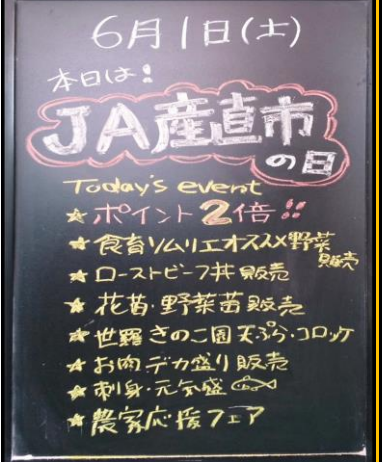 6月1日(土)
本日は!
JA産直市
の日
Today's event
★ポイント2倍!!
★食育ソムリエオススメ野菜
販売
★ローストビーフ丼販売
★花苗・野菜苗販売
★世羅きのこ園天ぷら・コロッケ
★お肉デカ盛り販売
★刺身・元気盛
★農家応援フェア